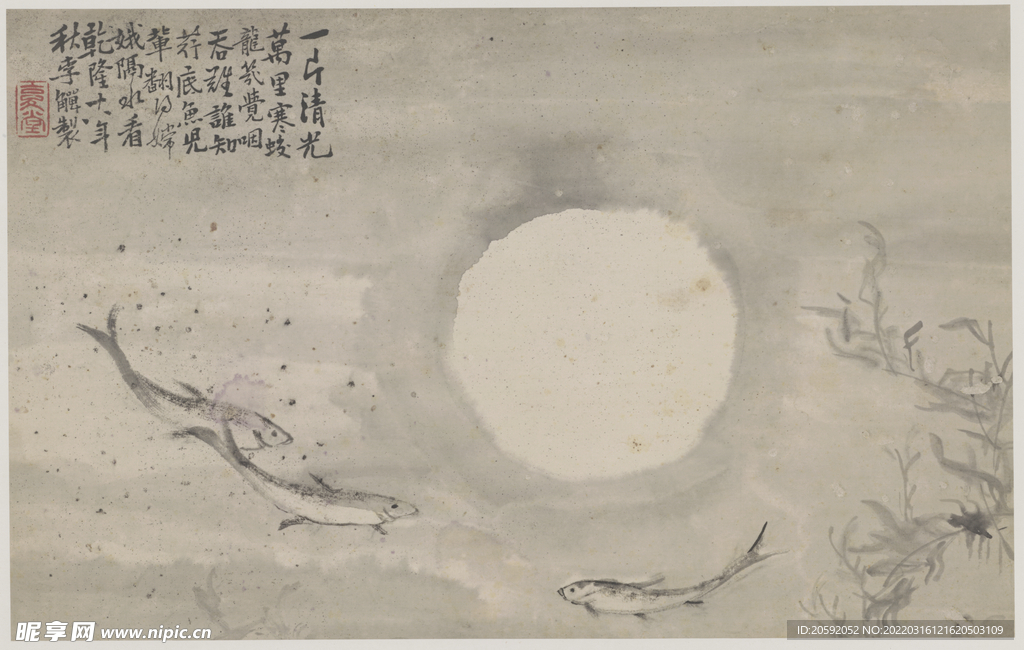 一片清光
萬里寒蛟
龍覺咽
吞難誰知
荇底魚兒
輩翻得嫦
娥隔水看
乾隆十八年
秋李觶製
昵享网 www.nipic.cn
ID:20592052 NO:20220316121620503109